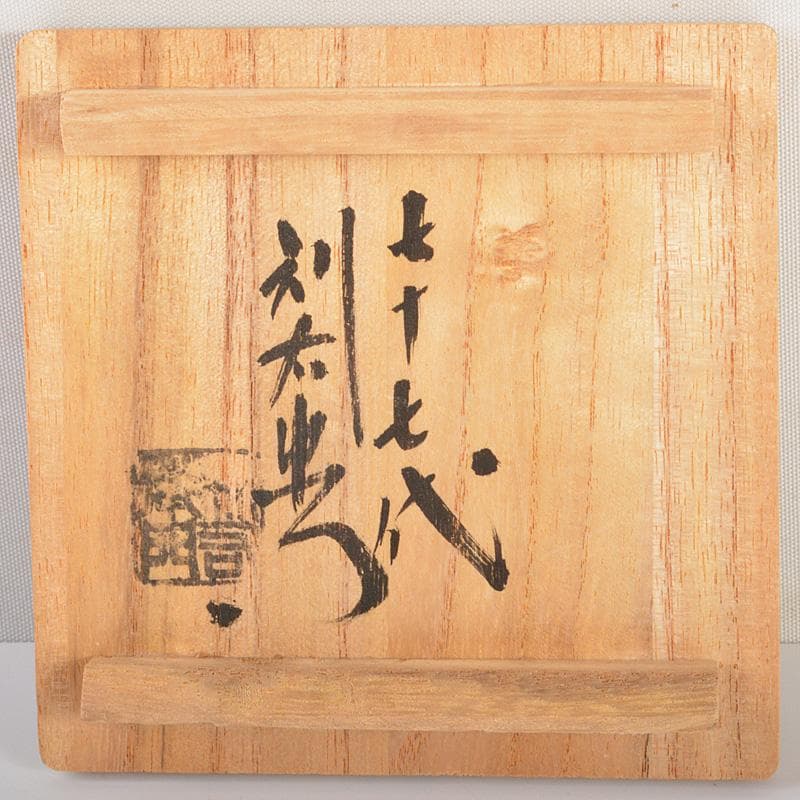 七十七代
利右衛門